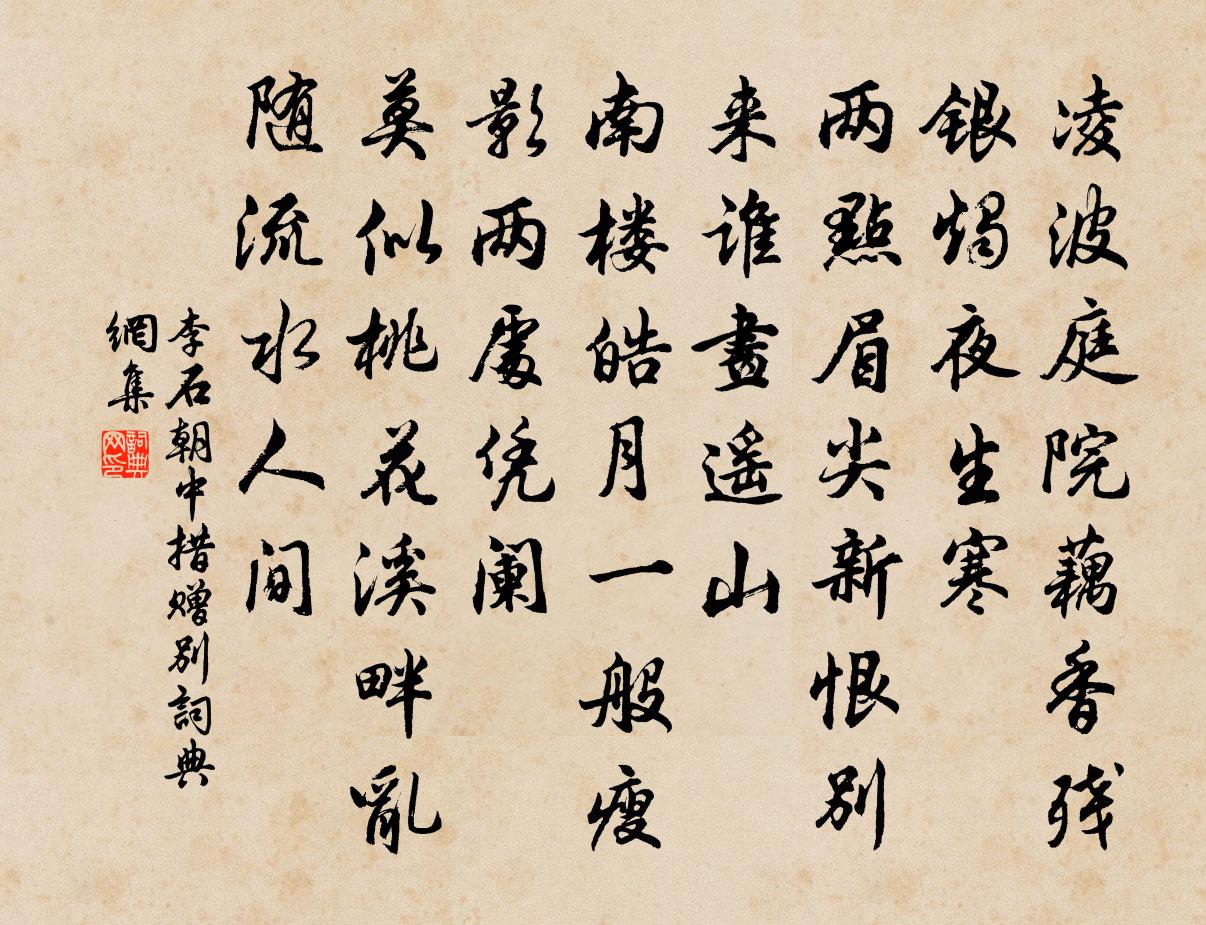 凌波庭院藕香残
银烛夜生寒
两點眉尖新恨别
来谁畫遥山
南楼皓月一般瘦
影两處凭阑
莫似桃花溪畔亂
随流水人间
李石朝中措赠别詞典
網集
詞典网印